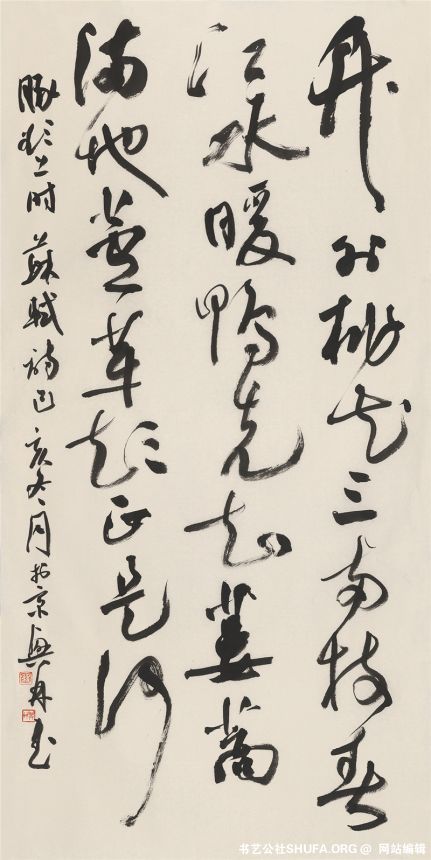 竹外桃花三两枝春
江水暖鴨先知蔞蒿
满地蘆芽短正是河
豚欲上时 蘇軾詩 己亥冬月於京 书
书艺公社SHUFA.ORG @ 网站编辑